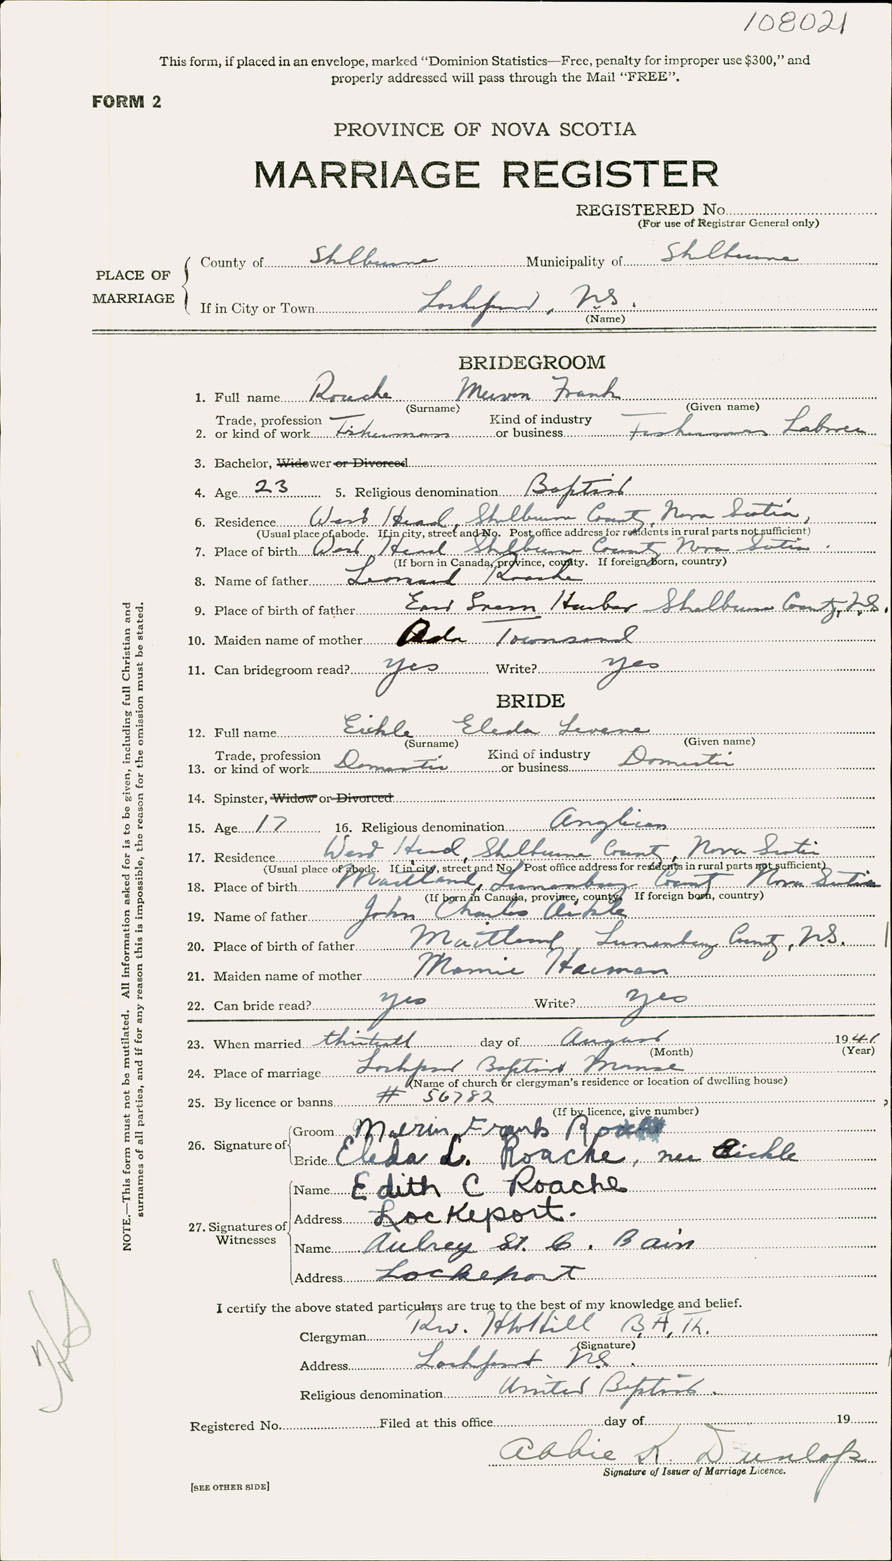 108021
This form, if placed in an envelope, marked “Dominion Statistics—Free, penalty for improper use $300,” and
properly addressed will pass through the Mail “FREE”.
FORM 2
PROVINCE OF NOVA SCOTIA
MARRIAGE REGISTER
REGISTERED No.
(For use of Registrar General only)
PLACE OF MARRIAGE
County of Shelburne Municipality of Shelburne
If in City or Town Lockeport, N.S.
(Name)
BRIDEGROOM
1. Full name Roache Mervin Frank
(Surname) (Given name)
2. Trade, profession or kind of work Fisherman Kind of industry or business Fisherman Labour
3. Bachelor, Widower or Divorced
4. Age 23 5. Religious denomination Baptist
6. Residence West Head, Shelburne County, Nova Scotia,
(Usual place of abode. If in city, street and No. Post office address for residents in rural parts not sufficient)
7. Place of birth West Head Shelburne County Nova Scotia.
(If born in Canada, province, county. If foreign born, country)
8. Name of father Leonard Roache
9. Place of birth of father East Green Harbor Shelburne County, N.S.
10. Maiden name of mother Ada Townsend
11. Can bridegroom read? yes Write? yes
BRIDE
12. Full name Eickle Eleda Levene
(Surname) (Given name)
13. Trade, profession or kind of work Domestic Kind of industry or business Domestic
14. Spinster, Widow or Divorced
15. Age 17 16. Religious denomination Anglican
17. Residence West Head, Shelburne County, Nova Scotia
(Usual place of abode. If in city, street and No. Post office address for residents in rural parts not sufficient)
18. Place of birth Maitland, Lunenburg County Nova Scotia
(If born in Canada, province, county. If foreign born, country)
19. Name of father John Charles Aickle
20. Place of birth of father Maitland Lunenburg County, N.S.
21. Maiden name of mother Mamie Haiman
22. Can bride read? yes Write? yes
23. When married thirtieth day of August 1941
(Month) (Year)
24. Place of marriage Lockeport Baptist Manse
(Name of church or clergyman’s residence or location of dwelling house)
25. By licence or banns # 56782
(If by licence, give number)
26. Signature of
Groom Mervin Frank Roache
Bride Eleda L. Roache, nee Eickle
27. Signatures of Witnesses
Name Edith C Roache
Address Lockeport.
Name Aubrey St. C. Bain
Address Lockeport
I certify the above stated particulars are true to the best of my knowledge and belief.
Clergyman Rev. Hill B.A., Th.
(Signature)
Address Lockeport N.S.
Religious denomination United Baptist.
Registered No. Filed at this office day of 19
Abbie K. Dunlop
Signature of Issuer of Marriage Licence.
[SEE OTHER SIDE]
NOTE.—This form must not be mutilated. All Information asked for is to be given, including full Christian and
surnames of all parties, and if for any reason this is impossible, the reason for the omission must be stated.